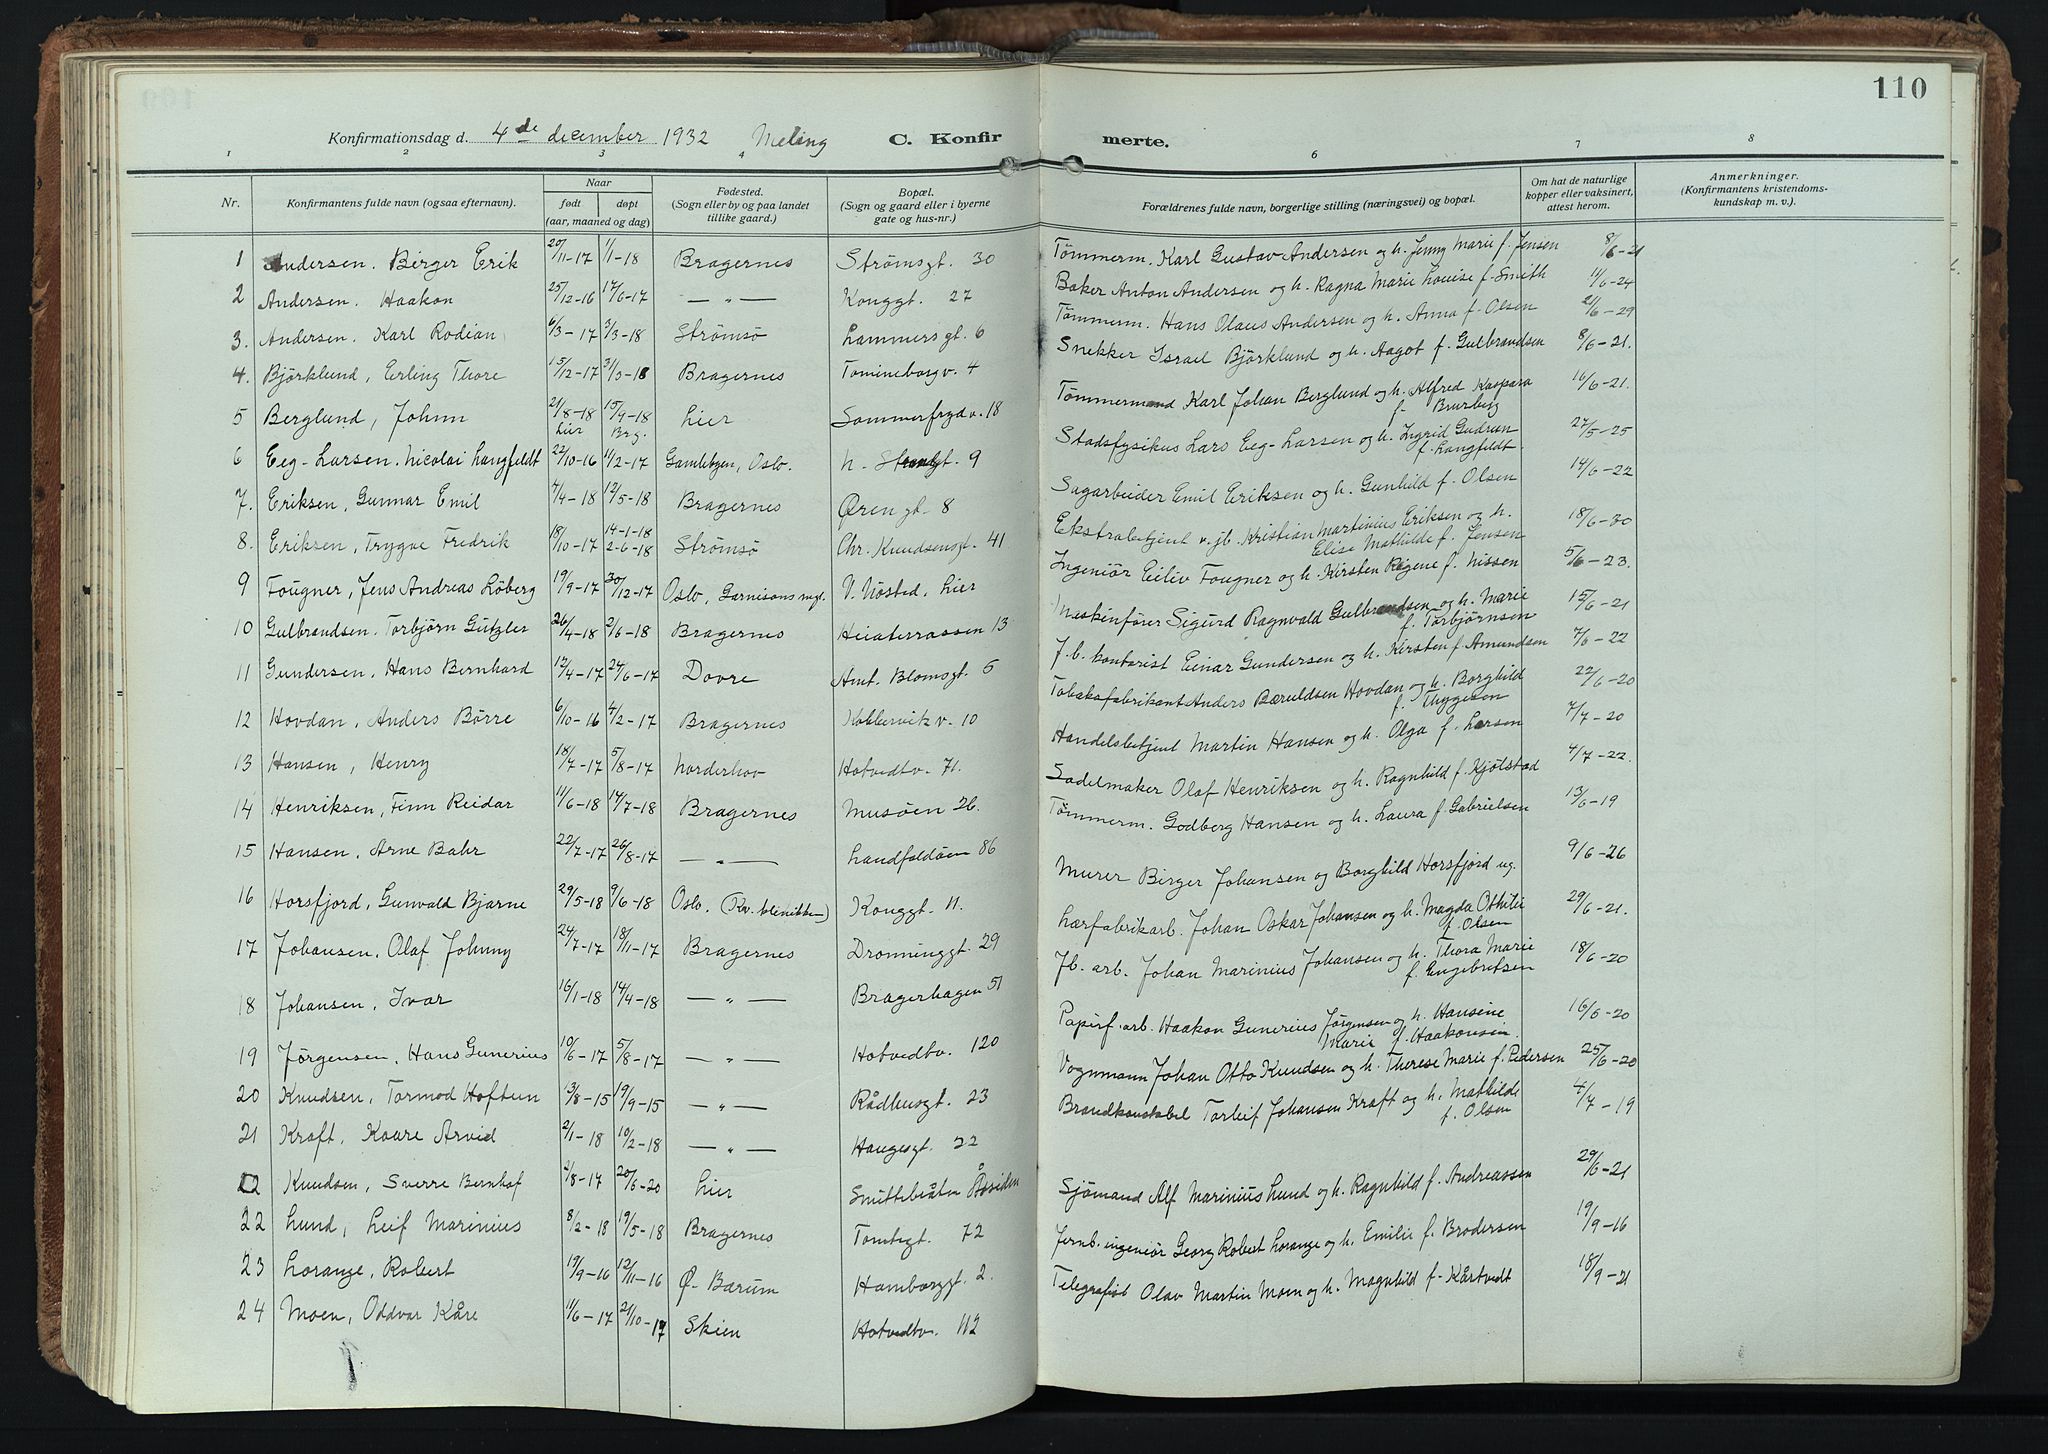 110
Konfirmationsdag d. 4de december 1932 Meling C. Konfirmerte.
1 2 3 4 6 7 8
Nr. Konfirmantens fulde navn (ogsaa efternavn). Naar født døpt (aar, maaned og dag) Fødested. (Sogn eller by og paa landet tillike gaard.) Bopæl. (Sogn og gaard eller i byerne gate og hus-nr.) Forældrenes fulde navn, borgerlige stilling (næringsvei) og bopæl. Om hat de naturlige kopper eller vaksinert, attest herom. Anmerkninger. (Konfirmantens kristendomskundskap m. v.).
1 Andersen. Birger Erik 20/11-17 1/1-18 Bragernes Strømsgt. 30 Tömmerm. Karl Gustav Andersen og h. Jenny Marie f. Jensen 8/6-21
2 Andersen. Haakon 25/12-16 17/6-17 — " — Konggt. 27 Baker Anton Andersen og h. Ragna Marie Louise f. Smith 11/6-24
3. Andersen. Karl Rodian 6/3-17 3/3-18 Strømsø Lammersgt. 6 Tömmerm. Hans Olaus Andersen og h. Anna f. Olsen 21/6-29
4. Björklund, Erling Thore 15/12-17 31/3-18 Bragernes Tomineborgv. 4 Snekker Israel Björklund og h. Aagot f. Gulbrandsen 8/6-21.
5 Berglund, Johnn 21/8-18 Lier 15/4-18 Brg. Lier Sommerfrydv. 18 Tömmermand Karl Johan Berglund og h. Alfred Kaspara f. Brurberg 16/6-21.
6 Eeg-Larsen. Nicolai Langfeldt 22/10-16 11/2-17 Gamlebyen, Oslo. N. Strandgt. 9 Stadsfysikus Lars Eeg-Larsen og h. Ingrid Gudrun f. Langfeldt. 27/5-25
7. Eriksen, Gunnar Emil 4/4-18 12/5-18 Bragernes Øren gt. 8 Sagarbeider Emil Eriksen og h. Gunhild f. Olsen 14/6-22
8. Eriksen, Trygve Fredrik 18/10-17 14-1-18 2-6-18 Strømsø Chr. Knudsensgt. 41 Ekstrabetjent v. jb. Kristian Martinius Eriksen og h. Elise Mathilde f. Jensen 18/6-30
9 Fougner, Jens Andreas Löberg 19/9-17 30/12-17 Oslo, Garnisonsmgt. V. Nösted, Lier Ingeniör Eiliv Fougner og h. Kirsten Regine f. Nissen 5/6-23.
10 Gulbrandsen. Torbjörn Gutzler 26/4-18 2/6-18 Bragernes Heiaterrassen 13 Maskinförer Sigurd Ragnvald Gulbrandsen og h. Marie f. Torbjörnsen 15/6-21
11 Gundersen, Hans Bernhard 12/4-17 24/6-17 Dovre Amt. Blomsgt. 5 J.b. kontorist Einar Gundersen og h. Kirsten f Amundsen 7/6-22
12 Hovdan, Anders Börre 6/10-16 4/2-17 Bragernes Kobbervikv. 10 Tobaksfabrikant Anders Bæruldsen Hovdan og h. Borghild f. Thygesen 22/6-20
13 Hansen, Henry 18/7-17 5/8-17 Norderhov Hotvedtv. 71. Handelsbetjent Martin Hansen og h. Olga f. Larsen 7/7-20
14 Henriksen, Finn Reidar 11/6-18 14/7-18 Bragernes Musøen 26. Sadelmaker Olaf Henriksen og h. Ragnhild f. Kjölstad 4/7-22.
15 Hansen, Arne Bahr 22/7-17 26/8-17 — " — Landfaldöen 86 Tömmerm. Godberg Hansen og h. Laura f Gabrielsen 13/6-19
16 Horsfjord, Gunvald Bjarne 29/5-18 9/6-18 Oslo. (Kv. klinikken) Konggt. 11. Murer Birger Johansen og Borghild Horsfjord ug. 9/6-26
17 Johansen. Olaf Johnny 24/7-17 18/11-17 Bragernes Dronninggt. 29 Lærfabrikarb. Johan Oskar Johansen og h. Magda Othilie f. Olsen 29/6-21.
18 Johansen, Ivar 16/1-18 14/4-18 — " — Bragerhagen 51 Jb. arb. Johan Marinius Johansen og h. Thora Marie f. Engebretsen 18/6-20
19 Jörgensen, Hans Gunerius 10/6-17 5/8-17 — " — Hotvedtv. 120 Papirf. arb. Haakon Gunerius Jörgensen og h. Hansine Marie f. Haakonsen 16/6-20
20 Knudsen, Tormod Hoftun 13/8-15 19/9-15 — " — Rådhusgt. 23 Vognmann Johan Otto Knudsen og h. Therese Marie f. Pedersen 25/6-20
21 Kraft, Kaare Arvid 2/1-18 10/2-18 — " — Haugesgt. 22 Brandkonstabel Torleif Johansen Kraft og h. Mathilde f. Olsen 4/7-19
22 Knudsen, Sverre Bernhof 2/8-17 20/6-20 Lier Åsiden
22 Lund, Leif Marinius 8/2-18 19/5-18 Bragernes Tomtegt. 72 Sjömand Alf Marinius Lund og h. Ragnhild f. Andreassen 29/6-21
23 Lorange, Robert 19/9-16 12/11-16 Ø. Bærum Hamborggt 2. Jernb. ingeniör Georg Robert Lorange og h. Emilie f. Brodersen 19/9-16
24 Moen, Oddvar Kåre 11/6-17 21/10-17 Skien Hotvedtv. 112 Telegrafist Olav Martin Moen og h. Magnhild f. Kårtvedt 18/9-21